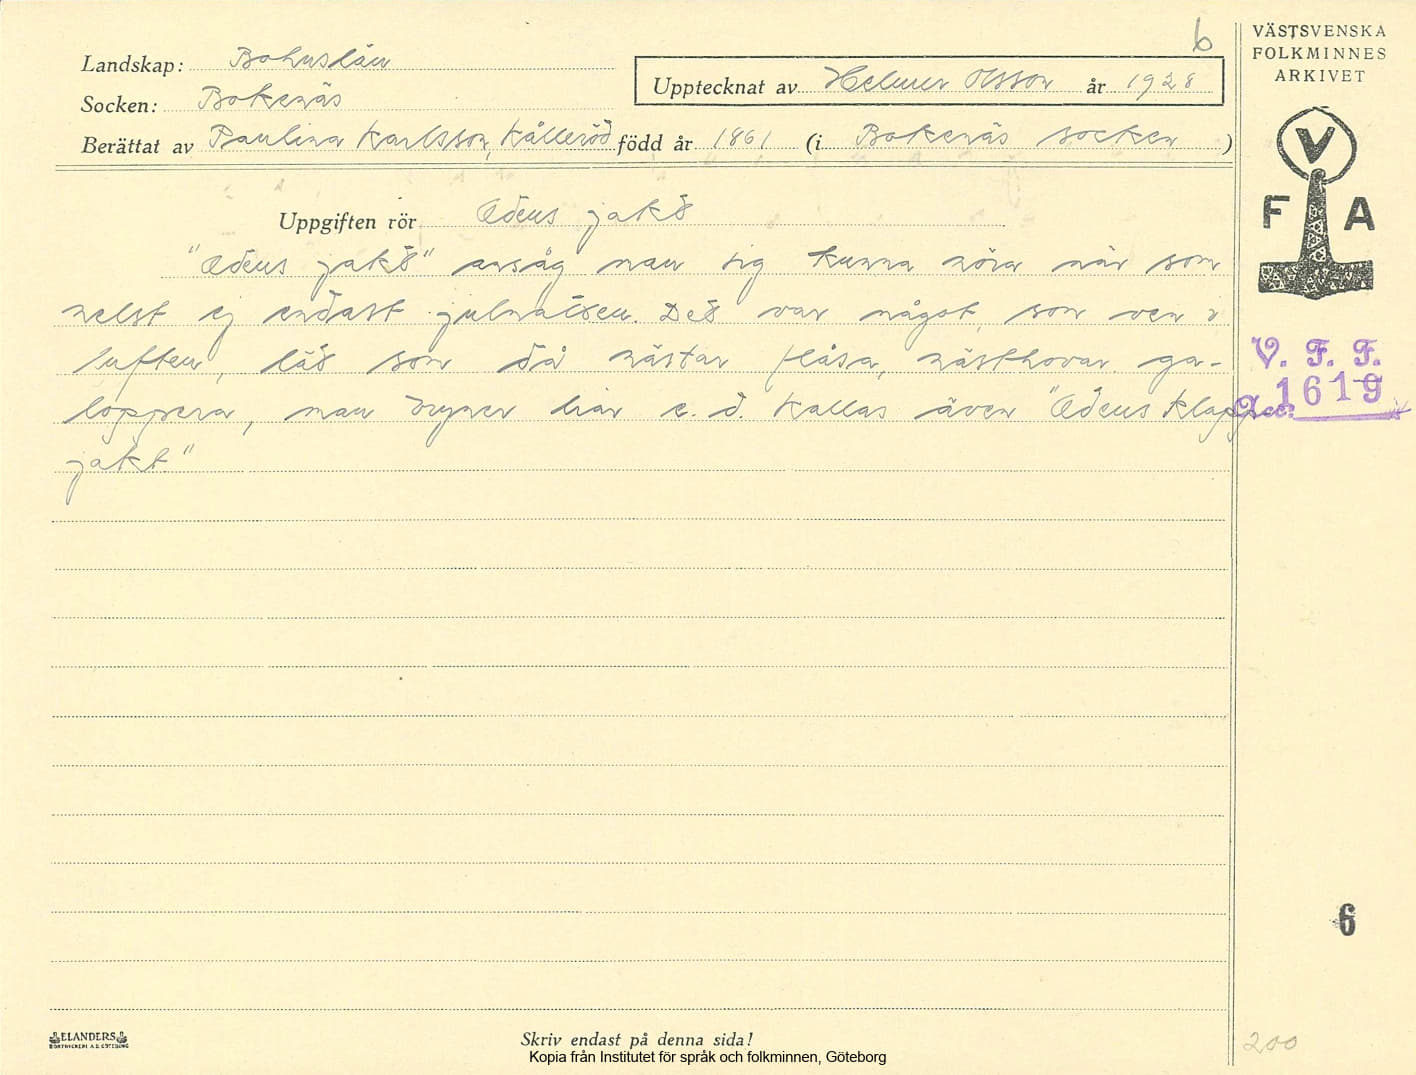 6
VÄSTSVENSKA
FOLKMINNES
ARKIVET
Landskap: Bohuslän
Upptecknat av Helmer Olsson år 1928
Socken: Bokenäs
Berättat av Paulina Karlsson, Kålleröd född år 1861 (i Bokenäs socken )
V
F A
Uppgiften rör Odens jakt
"Odens jakt" ansåg man sig kunna höra när som
helst ej endast julnatten. Det var något, som ven i
luften, lät som då hästar flåsa, hästhovar ga-
loppera, man hundar o. d. Kallas även "Odens klapp-
jakt"
V. F. F.
Acc. 1619
6
ELANDERS
BOKTRYCKERI A.B. GÖTEBORG
Skriv endast på denna sida!
Kopia från Institutet för språk och folkminnen, Göteborg
200